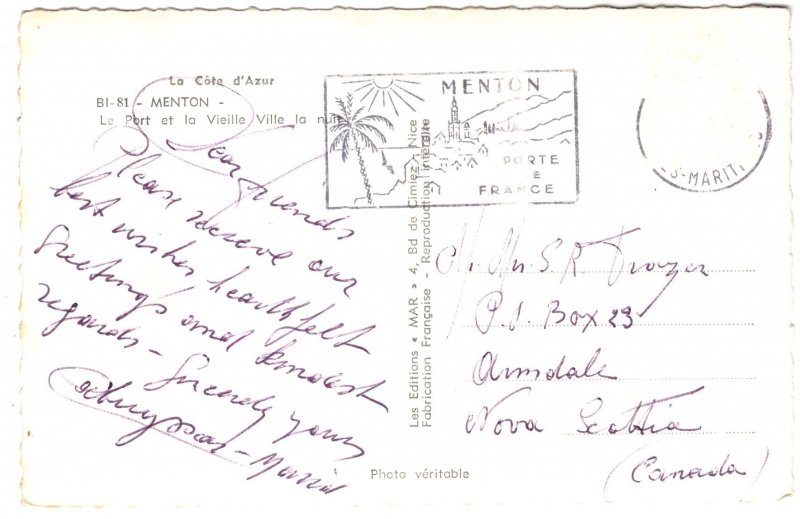 La Côte d'Azur
BI-81 - MENTON -
Le Port et la Vieille Ville la nuit
MENTON
PORTE
DE
FRANCE
S-MARIT.
Dear friends
Please receive our
best wishes heartfelt
greetings and kindest
regards - Sincerely yours
Les Editions « MAR » 4, Bd de Cimiez, Nice
Fabrication Française - Reproduction interdite
S. R. Frazer
P.O. Box 23
Armdale
Nova Scottia
(Canada)
Photo véritable